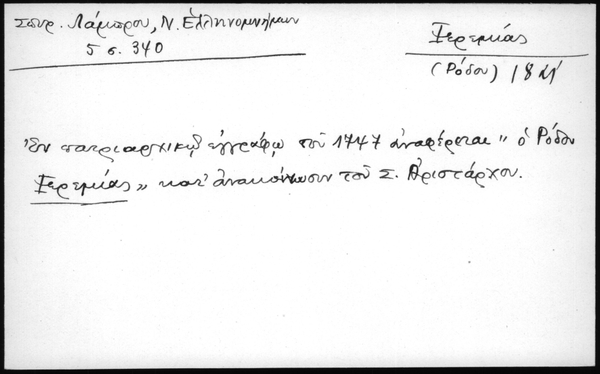 Σπυρ. Λάμπρου, Ν. Ἑλληνομνήμων
5 σ. 340
Ἱερεμίας
(Ῥόδου)
Ἐν πατριαρχικῷ ἐγγράφῳ τοῦ 1747 ἀναφέρεται „ ὁ Ῥόδου
Ἱερεμίας „ κατ' ἀνακοίνωσιν τοῦ Σ. Ἀριστάρχου.